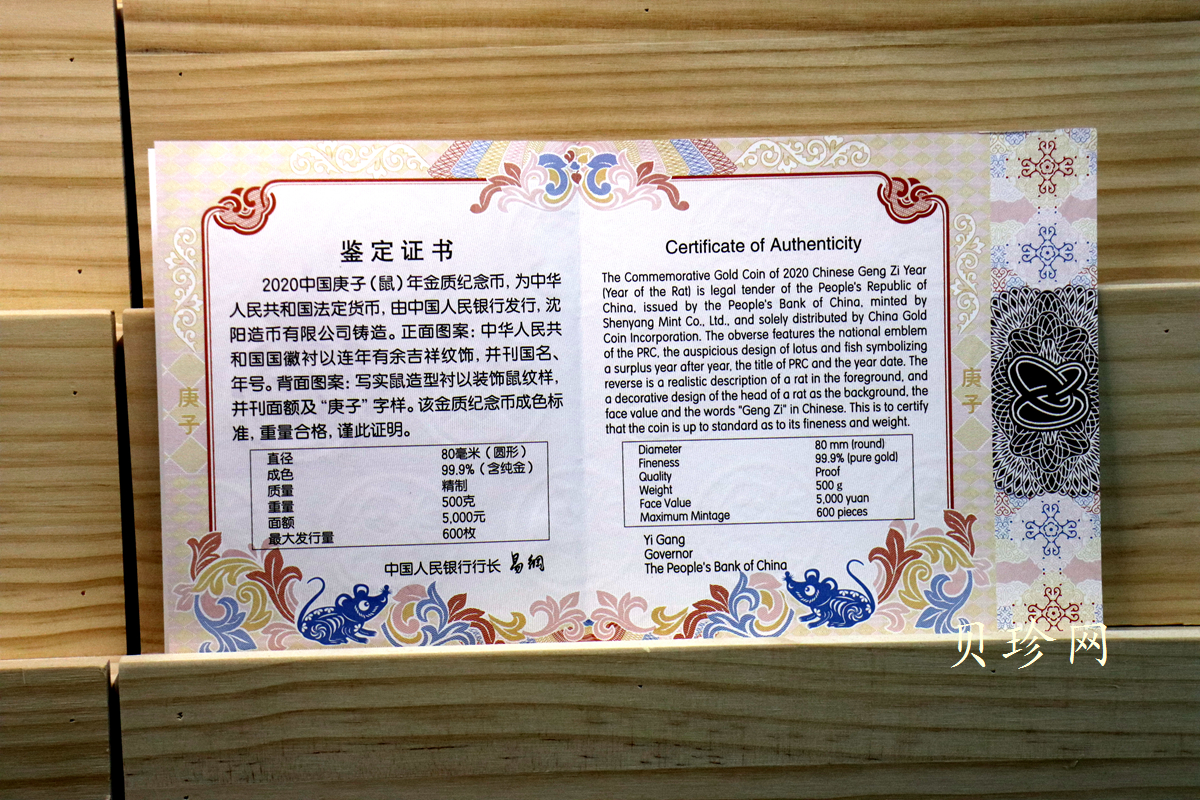 鉴定证书
2020中国庚子(鼠)年金质纪念币,为中华
人民共和国法定货币,由中国人民银行发行,沈
阳造币有限公司铸造。正面图案:中华人民共
和国国徽衬以连年有余吉祥纹饰,并刊国名、
年号。背面图案:写实鼠造型衬以装饰鼠纹样,
并刊面额及“庚子”字样。该金质纪念币成色标
准,重量合格,谨此证明。
直径 80毫米(圆形)
成色 99.9%(含纯金)
质量 精制
重量 500克
面额 5,000元
最大发行量 600枚
中国人民银行行长 易纲
庚子
Certificate of Authenticity
The Commemorative Gold Coin of 2020 Chinese Geng Zi Year
(Year of the Rat) is legal tender of the People's Republic of
China, issued by the People's Bank of China, minted by
Shenyang Mint Co., Ltd., and solely distributed by China Gold
Coin Incorporation. The obverse features the national emblem
of the PRC, the auspicious design of lotus and fish symbolizing
a surplus year after year, the title of PRC and the year date. The
reverse is a realistic description of a rat in the foreground, and
a decorative design of the head of a rat as the background, the
face value and the words "Geng Zi" in Chinese. This is to certify
that the coin is up to standard as to its fineness and weight.
Diameter 80 mm (round)
Fineness 99.9% (pure gold)
Quality Proof
Weight 500 g
Face Value 5,000 yuan
Maximum Mintage 600 pieces
Yi Gang
Governor
The People's Bank of China
庚子
贝珍网